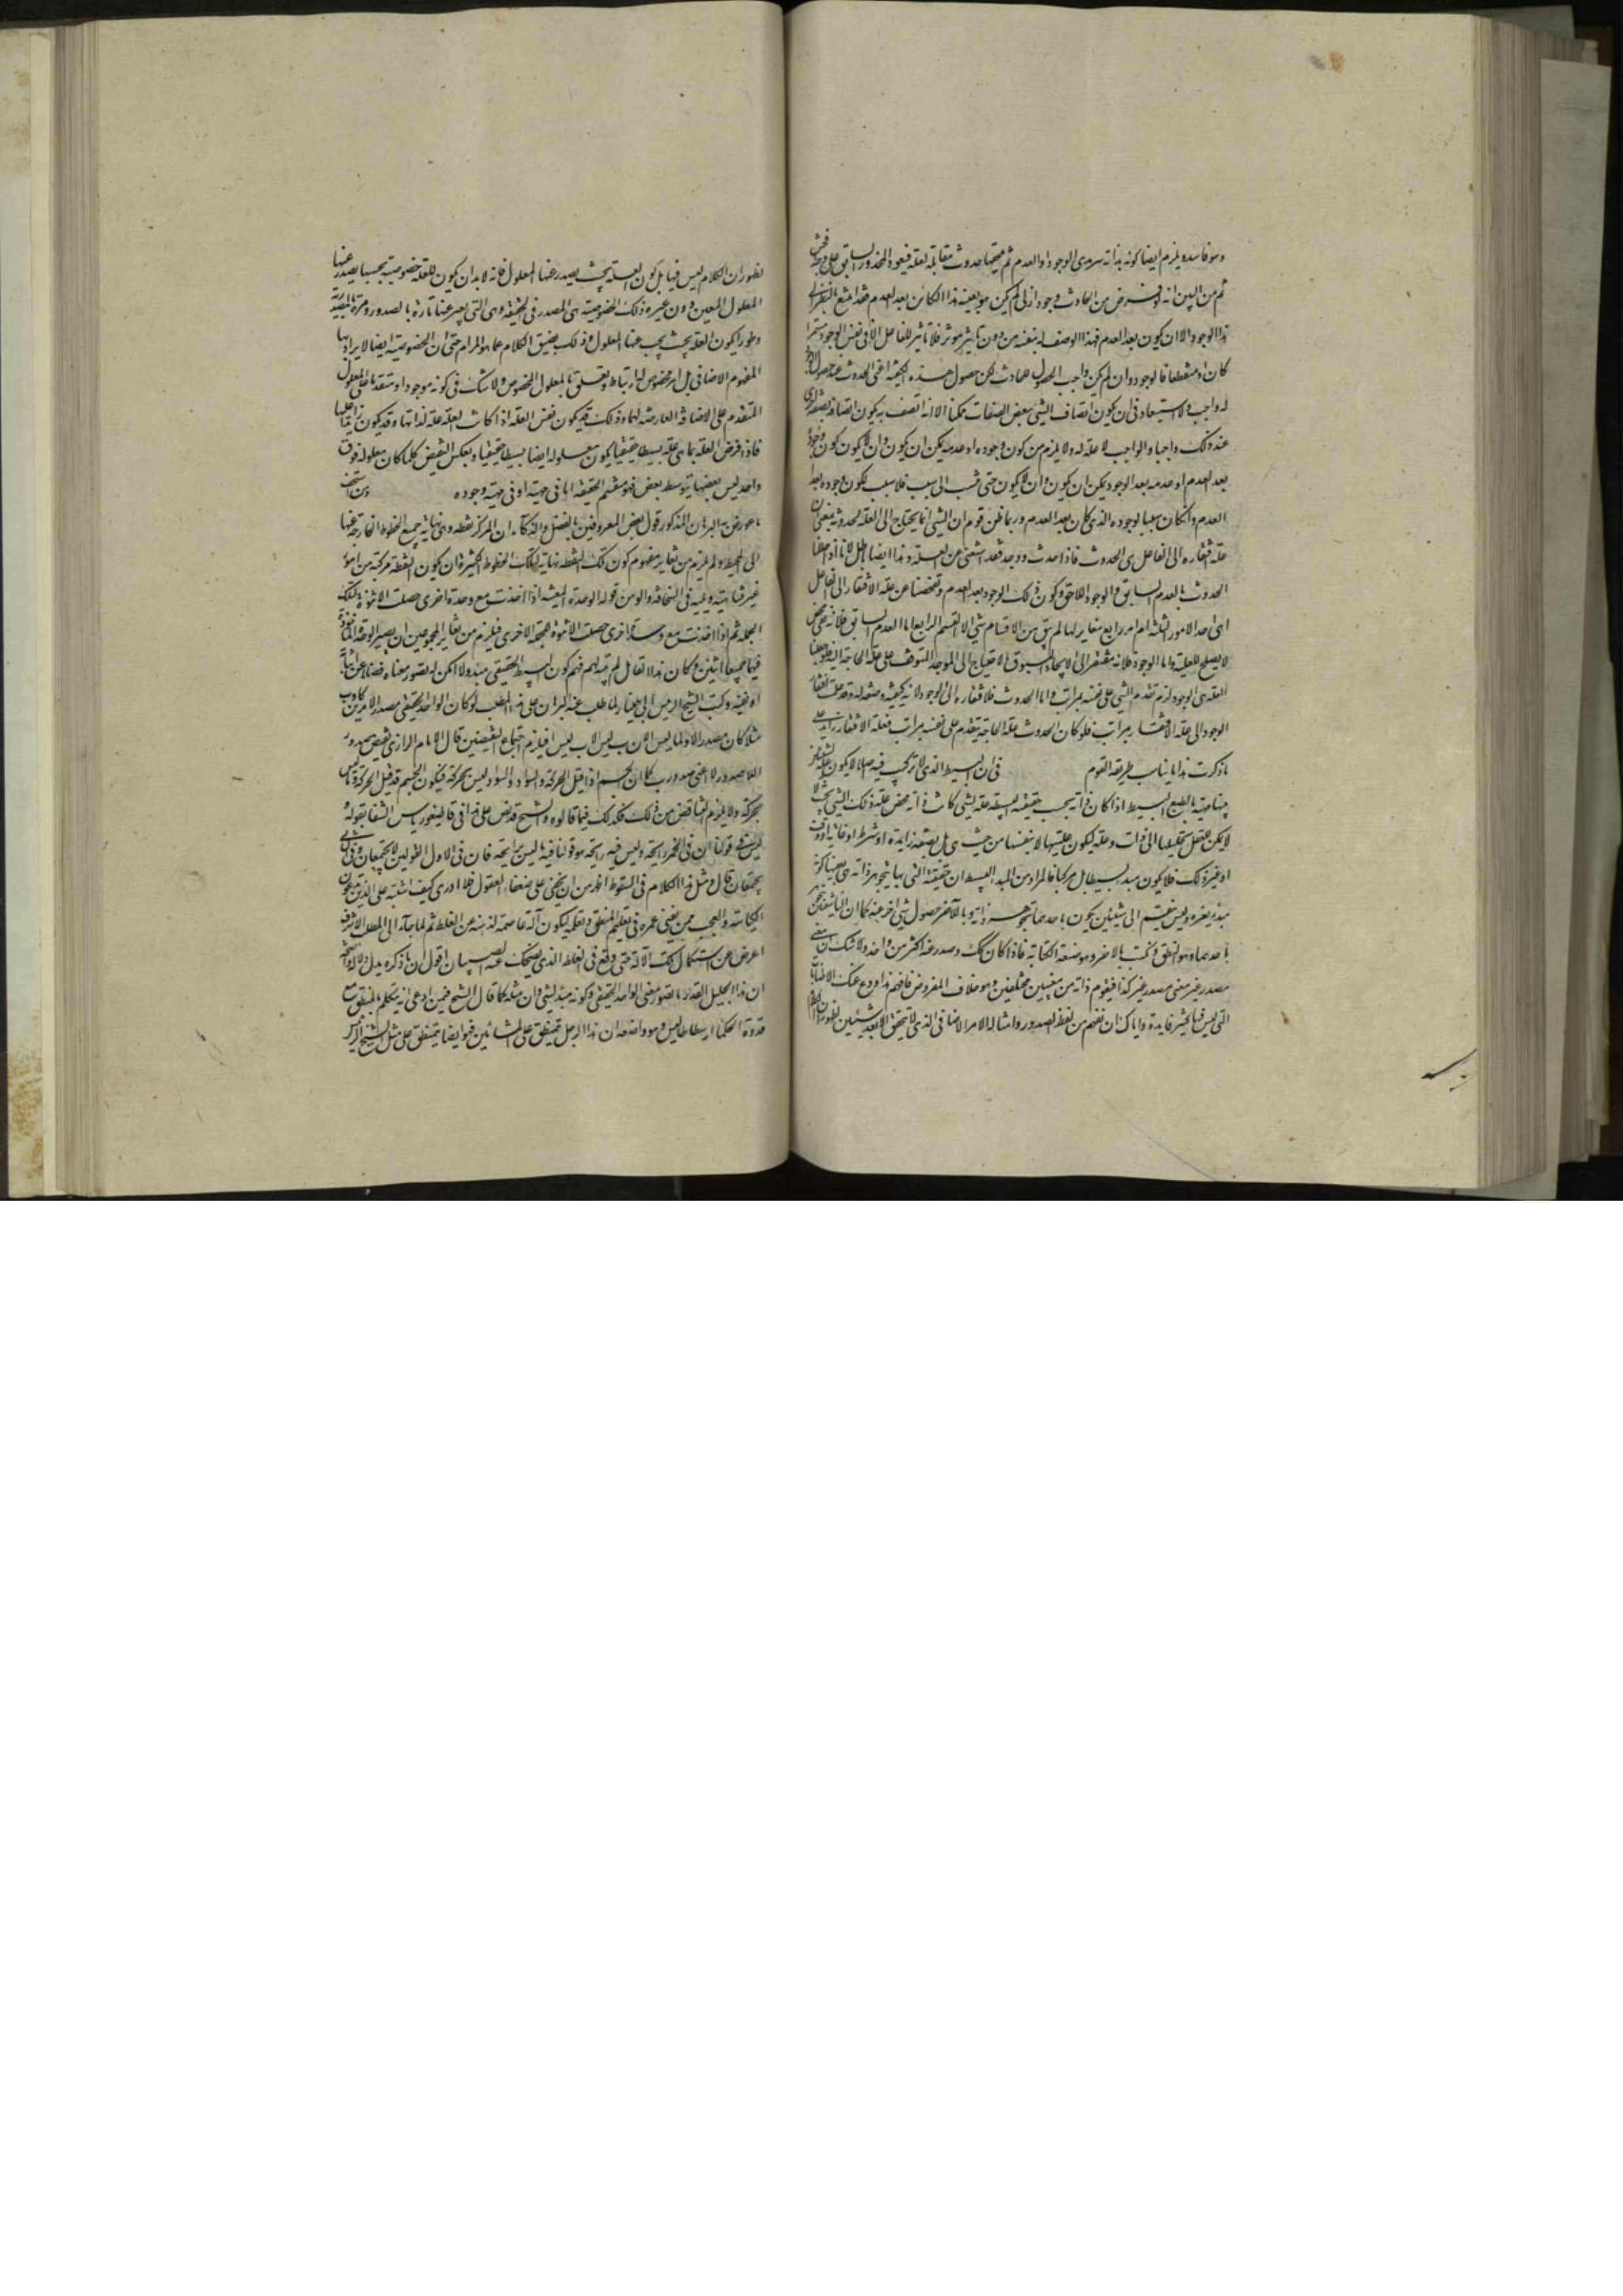 وهو فاسد ويلزم ايضا كونه بذاته سرمدى الوجود او العدم ثم مع حدوث مقابله لعلة فيعود المحذور السابق على وجه افحش
ثم من البين انه لو فرض من الحادث وجود ازلى لم يكن هو بعينه هذا الكائن بعد العدم فقد امتنع بالنظر الى
هذا الوجود الا ان يكون بعد العدم فهذا الوصف له بنفسه من دون تاثير مؤثر فلا تاثير للفاعل الا فى نفس الوجود مستمرا
كان او منقطعا فالوجود وان لم يكن واجب الحصول للحادث لكن حصول هذه الكيفية اعنى الحدوث عند حصول الوجود
له واجب ولا استبعاد فى ان يكون اتصاف الشئ ببعض الصفات ممكنا الا انه اتصف به يكون اتصافه بصفة اخرى
عند ذلك واجبا والواجب لا علة له ولا يلزم من كون وجوده او عدمه يمكن ان يكون وان لا يكون كون وجوده
بعد العدم او عدمه بعد الوجود يمكن ان يكون وان لا يكون حتى ينسب الى سبب فلا سبب لكون وجوده بعد
العدم وان كان سببا لوجوده الذى كان بعد العدم وربما ظن قوم ان الشئ انما يحتاج الى العلة لحدوثه بمعنى ان
علة افتقاره الى الفاعل هى الحدوث فاذا حدث ووجد فقد استغنى عن العلة وهذا ايضا باطل لانا اذا حللنا
الحدوث بالعدم السابق والوجود اللاحق وكون ذلك الوجود بعد العدم وتفحصنا عن علة الافتقار الى الفاعل
اهى احد الامور الثلثة ام امر رابع مغاير لها لم يبق من الاقسام شئ الا القسم الرابع اما العدم السابق فلانه نفى محض
لا يصلح للعلية واما الوجود فلانه مفتقر الى الايجاد المسبوق بالاحتياج الى الموجد المتوقف على علة الحاجة اليه فلو جعلنا
العلة هى الوجود لزم تقدم الشئ على نفسه بمراتب واما الحدوث فلافتقاره الى الوجود لانه كيفية وصفة له وقد علمت افتقار
الوجود الى علة الافتقار بمراتب فلو كان الحدوث علة الحاجة يتقدم على نفسه بمراتب فعلة الافتقار زائد على
ما ذكرت هذا ما يناسب طريقة القوم فى ان البسيط الذى لا تركيب فيه اصلا لا يكون علة لشيئين
بينهما معية بالطبع البسيط اذا كان ذاته بحسب حقيقته البسيطة علة لشئ كانت ذاته محض علة ذلك الشئ بحيث
لا يمكن للعقل تحليلها الى ذات وعلة ليكون عليتها لا بنفسها من حيث هى بل بصفة زايدة او شرط او غاية او وقت
او غير ذلك فلا يكون مبدء بسيطا بل مركبا فالمراد من المبدء البسيط ان حقيقته التى بها يتجوهر ذاته هى بعينها كونه
مبدء لغيره وليس ينقسم الى شيئين يكون باحدهما تجوهر ذاته وبالآخر حصول شئ اخر عنه كما ان لنا شيئين نتجوهر
باحدهما وهو النطق ونكتب بالاخر وهو صنعة الكتابة فاذا كان كك وصدر عنه اكثر من واحد ولا شك ان معنى
مصدر غير معنى مصدر غير كذا فيقوم ذاته من معنيين مختلفين وهو خلاف المفروض فافهم هذا ودع عنك الاطنابات
التى ليس فيها كثير فايدة واياك ان تفهم من لفظ الصدور وامثاله الامر الاضافى الذى لا يتحقق الا بعد شيئين لظهور ان الكلام
لظهور ان الكلام ليس فيها بل كون العلة بحيث يصدر عنها المعلول فانه لا بد ان يكون للعلة خصوصية بحسبها يصدر عنها
المعلول المعين دون غيره وتلك الخصوصية هى المصدر فى الحقيقة وهى التى يعبر عنها تارة بالصدور ومرة بالمصدرية
وطورا بكون العلة بحيث يجب عنها المعلول وذلك لضيق الكلام عما هو المرام حتى ان الخصوصية ايضا لا يراد بها
المفهوم الاضافى بل امر مخصوص له ارتباط وتعلق بالمعلول المخصوص ولا شك فى كونه موجودا ومتقدما على المعلول
المتقدم على الاضافة العارضة لهما وذلك قد يكون نفس العلة اذا كانت العلة علة لذاتها وقد يكون زائدا عليها
فاذا فرض العلة بما هى علة بسيطا حقيقيا يكون معلوله ايضا بسيطا حقيقيا وبعكس النقيض كلما كان معلوله فوق
واحد ليس بعضها بتوسط بعض فهو منقسم الحقيقة اما فى مهيته او فى وجوده ومن السخف
ما عورض به البرهان المذكور قول بعض المعروفين بالفضل والذكاء ان المركز نقطة وهى نهاية جميع الخطوط الخارجة عنها
الى المحيط ولم يلزم من تغاير مفهوم كون تلك النقطة نهاية لتلك الخطوط الكثيرة ان يكون النقطة مركبة من امور
غير متناهية ويليه فى السخافة والوهن قوله الوحدة المعينة اذا اخذت مع وحدة اخرى حصلت الاثنوة لتلك
الجملة ثم اذا اخذت مع وحدة اخرى حصلت الاثنوة لجملة الاخرى فيلزم من تغاير المجموعين ان يصير الوحدة الماخوذة
فيهما جميعا اثنين وكان هذا القائل لم يتدبر لهم فهم كون البسيط الحقيقى مبدء ولا امكن له تصور معناه فضلا عن اثباته
او نفيه وكتب الشيخ الرئيس الى بهمنيار لما طلب عنه البرهان على هذا المطلب لو كان الواحد الحقيقى مصدرا لامرين كاوب
مثلا كان مصدرا لاولما ليس الان ب ليس ا فيلزم اجتماع النقيضين قال الامام الرازى نقيض صدور
اللاصدور لا اعنى صدور ب كما ان الجسم اذا قبل الحركة والسواد والسواد ليس بحركة فيكون الجسم قد قبل الحركة وما ليس
بحركة ولا يلزم التناقض من ذلك فكذلك فيما قالوه والشيخ قد نص على هذا فى قاطيغورياس الشفا بقوله
ليس قولنا ان فى الخمر رائحة وليس فيه رائحة هو قولنا فيه ما ليس برائحة فان فى الاول القولين لا يجتمعان وفى الثانى
يجتمعان قال ومثل هذا الكلام فى السقوط اظهر من ان يخفى على ضعفاء العقول فلا ادرى كيف اشتبه على الذين يدعون
الكياسة والعجب ممن يفنى عمره فى تعليم المنطق وتعلمه ليكون آلة عاصمة لذهنه عن الغلط ثم لما جاء الى المطلب الاشرف
اعرض عن استعمال تلك الآلة حتى وقع فى الغلط الذى يضحك عنه الصبيان اقول ان ما ذكره يدل دلالة واضحة
ان هذا الجليل القدر ما تصور معنى الواحد الحقيقى وكونه مبدء لشئ وان مثله كما قال الشيخ فيمن ادعى انه يتكلم بالمنطق مع
قدوة الحكماء ارسطاطاليس وهو واضعه ان هذا الرجل يتمنطق على المشائين فهو ايضا يتمنطق على مثل الشيخ الرئيس